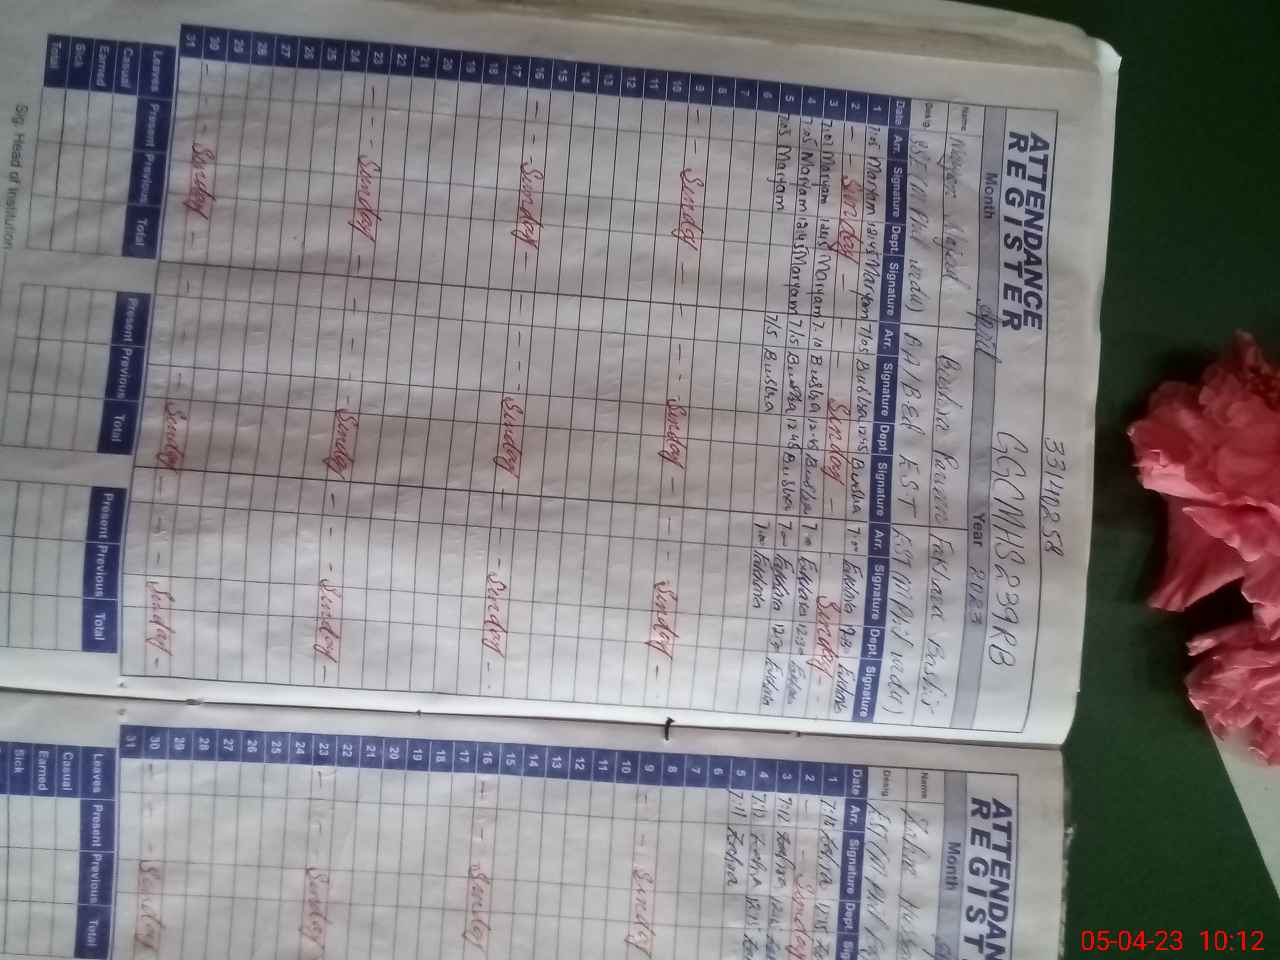 33140258
ATTENDANCE GGCMHS239RB
REGISTER
Month April Year 2023
Name Majeed Bushra Parveen Fakhara Bashir
Desig. SSE (M Phil urdu) BA/B.Ed EST EST M Phil urdu)
Date Arr. Signature Dept. Signature Arr. Signature Dept. Signature Arr. Signature Dept. Signature
1 7:05 Maryam 12:45 Maryam 7:05 Bushra 12:45 Bushra 7:00
2 Sunday Sunday Sunday
3 7:07 Maryam 12:45 Maryam 7:10 Bushra 12:45 Bushra 7:00 Fakhara 12:30 Fakhara
4 7:05 Maryam 12:45 Maryam 7/5 Bushra 12:45 Bushra 7:00 Fakhara
5 7:05 Maryam 7/5 Bushra 7:00 Fakhara 12:30 Fakhara
6
7
8
9 Sunday Sunday Sunday
10
11
12
13
14
15
16 Sunday Sunday Sunday
17
18
19
20
21
22
23 Sunday Sunday Sunday
24
25
26
27
28
29
30 Sunday Sunday Sunday
31
Leaves Present Previous Total Present Previous Total Present Previous Total
Casual
Earned
Sick
Total
Sig. Head of Institution
ATTENDAN
REGIST
Month
Name
Desig. EST (M Phil
Date Arr. Signature Dept. Sig
1 7:12 Zohra 12:15
2 Sunday
3 7:12 Zohra 12:45
4 7:12 Zohra 12:15
5 7:11 Zohra
6
7
8
9 Sunday
10
11
12
13
14
15
16 Sunday
17
18
19
20
21
22
23 Sunday
24
25
26
27
28
29
30 Sunday
31
Leaves Present Previous Total
Casual
Earned
Sick
05-04-23 10:12